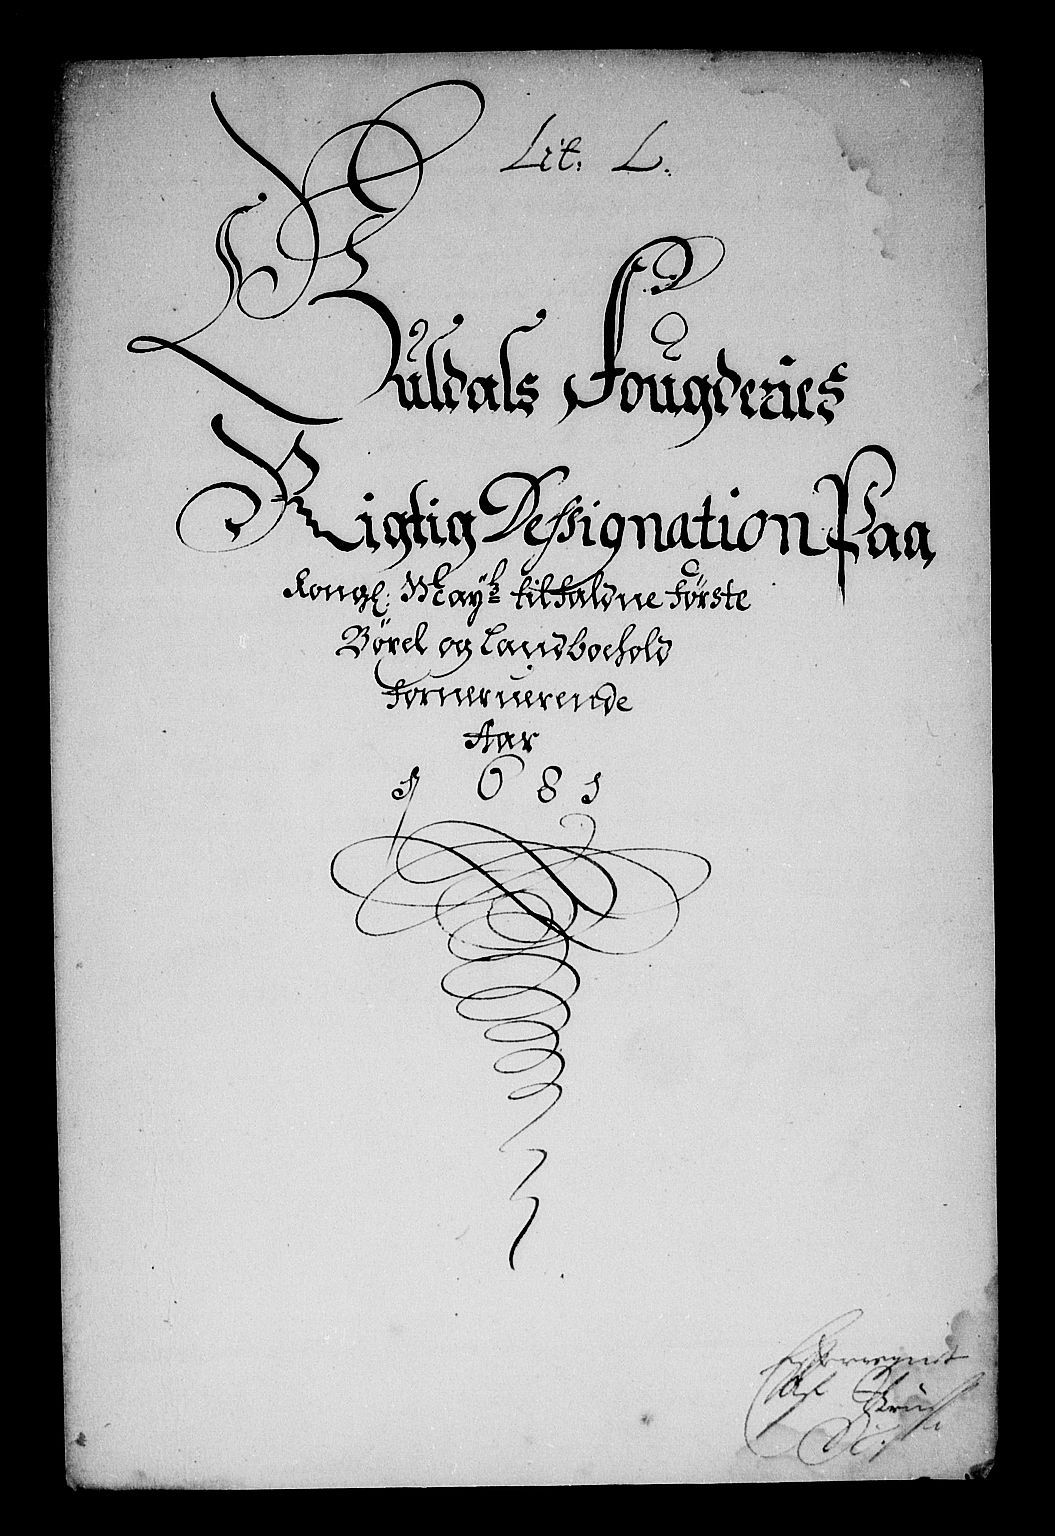 Lit. L.
Guldals Fougderies
Rigtig Dessignation Paa
Kongl: Mayᵗˢ tilfaldne Første
Bøxel og Landboehold
for nerverende
Aar
1681
Efterregnet